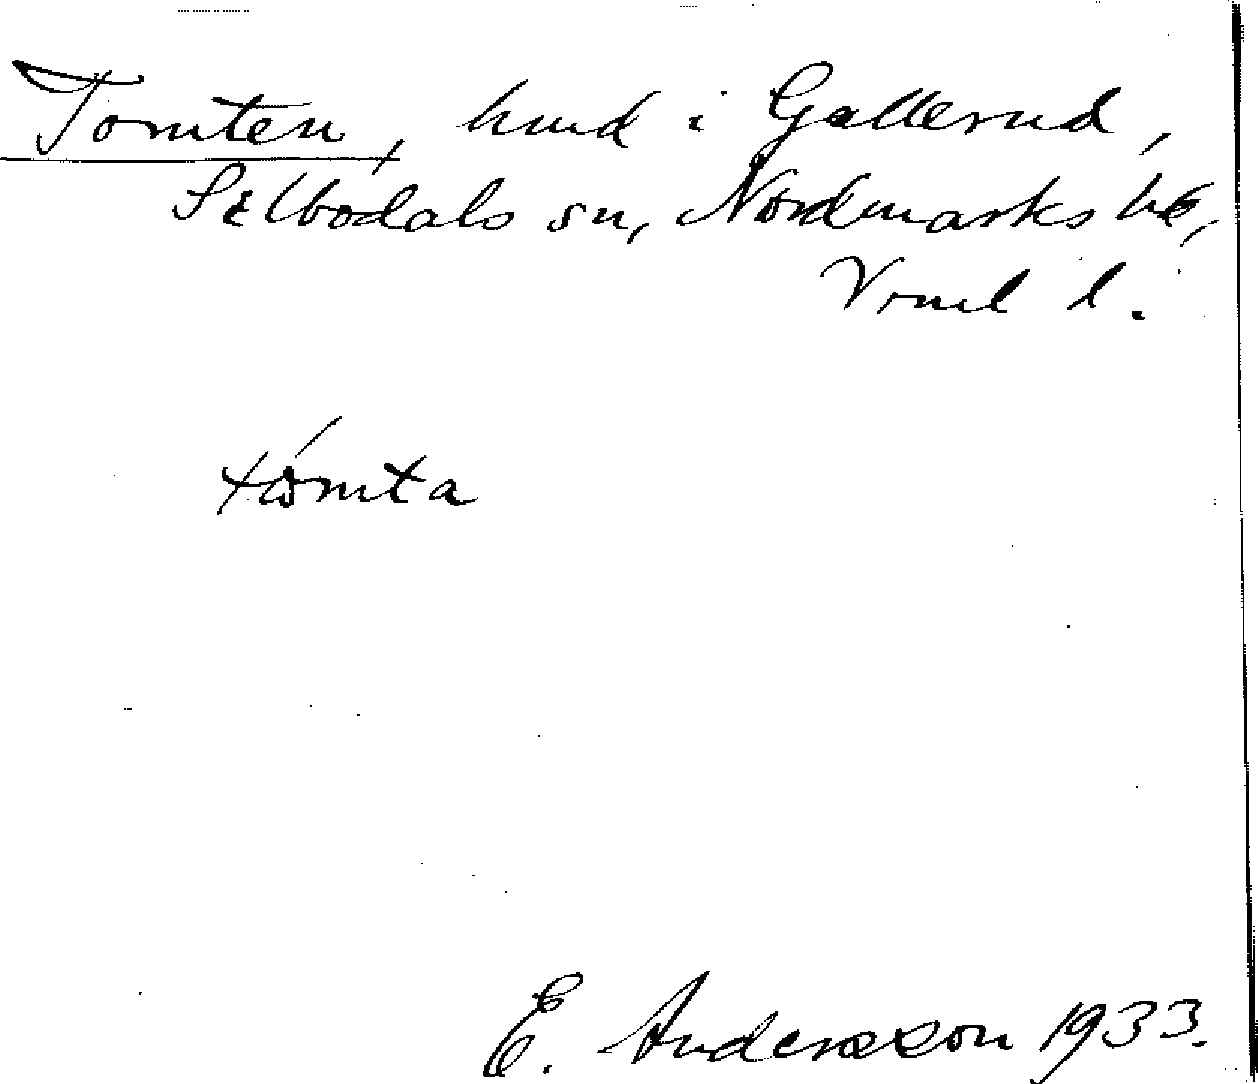 Tomten, hmd i Gallerud,
Silbodals sn, Nordmarks hd,
Vrml l.
tòmta
E. Andersson 1933.